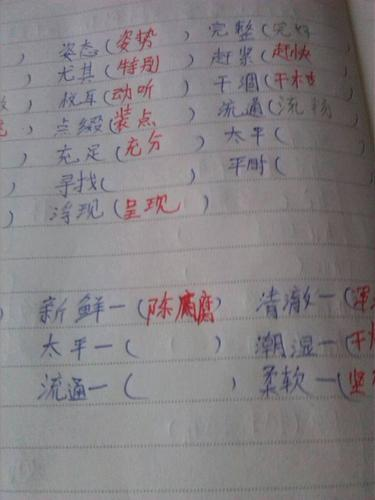 姿态(姿势) 完整(完好
尤其(特别) 赶紧(赶快
悦耳(动听) 干涸(干枯
点缀(装点) 流通(流畅
充足(充分) 太平(
寻找( ) 平时(
浮现(呈现)
新鲜—(陈腐) 清澈—(浑
太平—( ) 潮湿—(干
流通—( ) 柔软—(坚